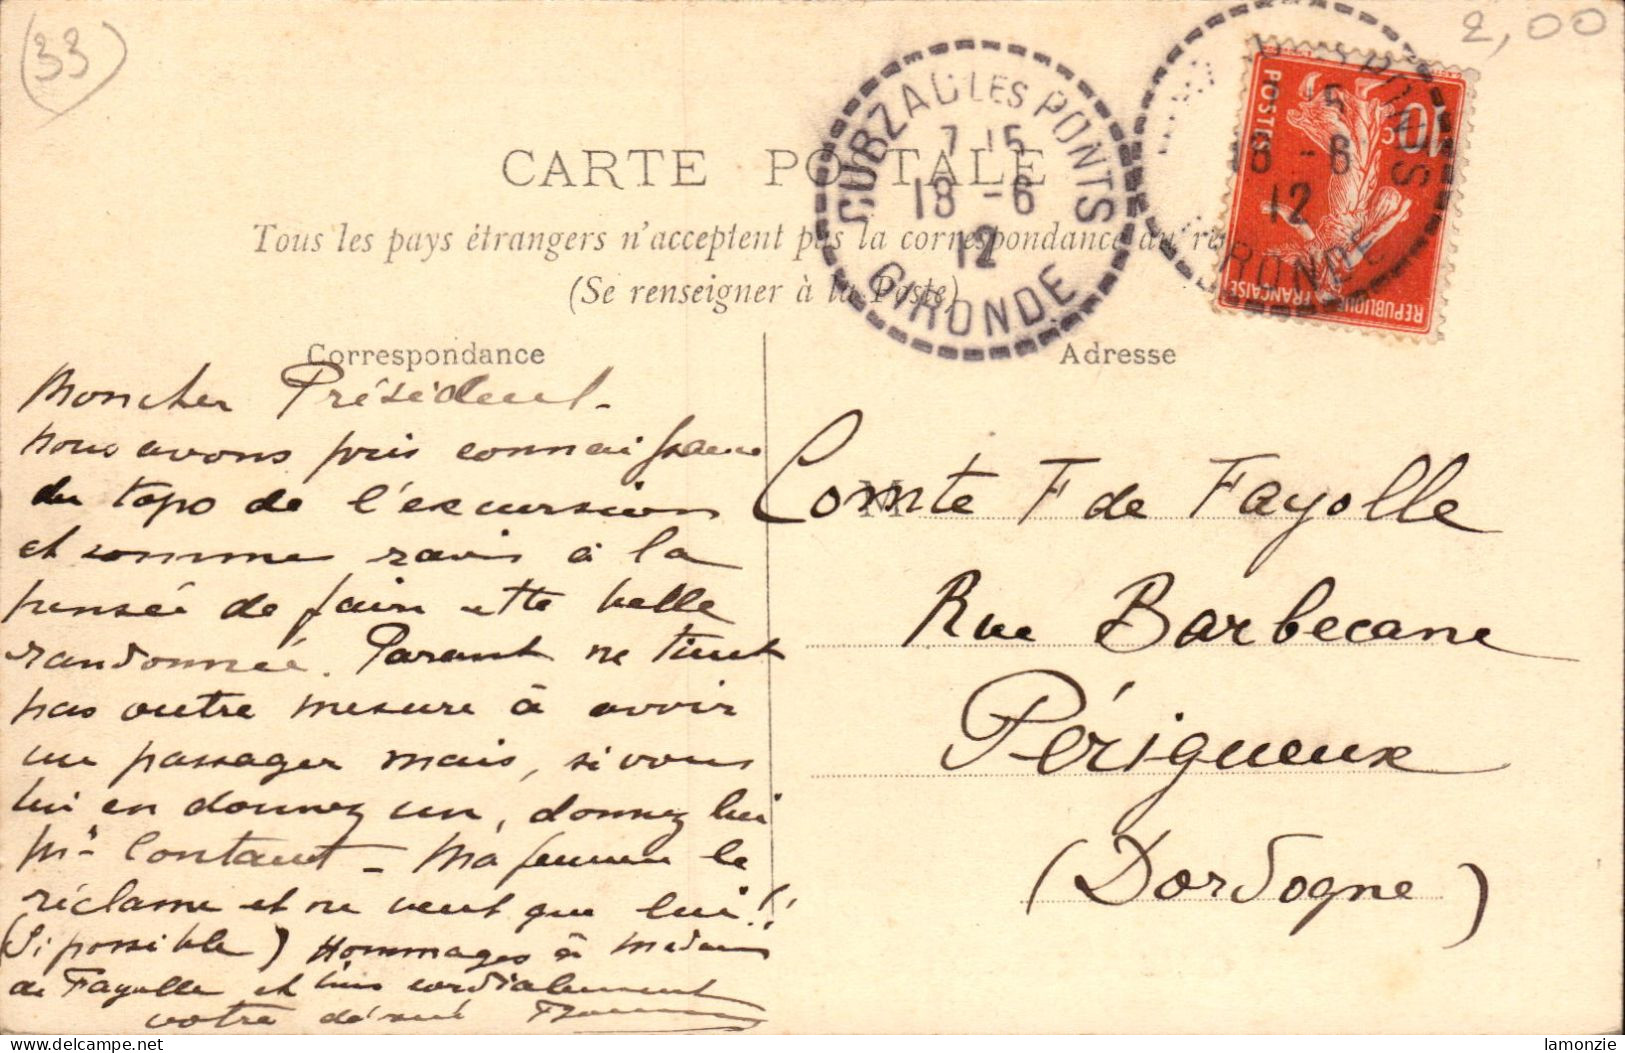 (33)
2,00
CUBZAC LES PONTS
7 15
18 - 6
12
GIRONDE
POSTES
10 c
REPUBLIQUE FRANÇAISE
18 - 6
12
GIRONDE
CARTE POSTALE
Tous les pays étrangers n'acceptent pas la correspondance au
(Se renseigner à la Poste)
Correspondance
Adresse
Mon cher Président -
nous avons pris connaissance
du topo de l'excursion
et sommes ravis à la
pensée de faire cette belle
randonnée. Parant ne tient
pas outre mesure à avoir
un passager mais, si vous
lui en donnez un, donnez lui
Mr Contaut - Ma femme le
réclame et ne veut que lui!!
(Si possible) Hommages à Madame
de Fayolle et bien cordialement
votre dévoué
M
Comte F de Fayolle
Rue Barbecane
Périgueux
(Dordogne)
delcampe.net
lamonzie